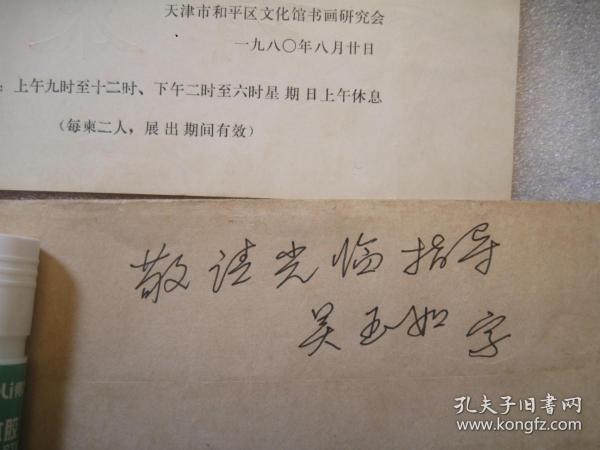 天津市和平区文化馆书画研究会
一九八〇年八月廿日
：上午九时至十二时、下午二时至六时星期日上午休息
（每柬二人，展出期间有效）
敬请光临指导
吴玉如字
孔夫子旧书网
www.kongfz.com